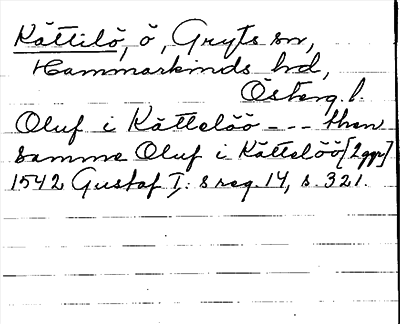 Kättilö, ö, Gryts sn,
Hammarkinds hd,
Österg. l.
Oluf i Kättelöö - - - then
samme Oluf i Kättelöö [2 ggr]
1542 Gustaf I: s reg. 14, s. 321.